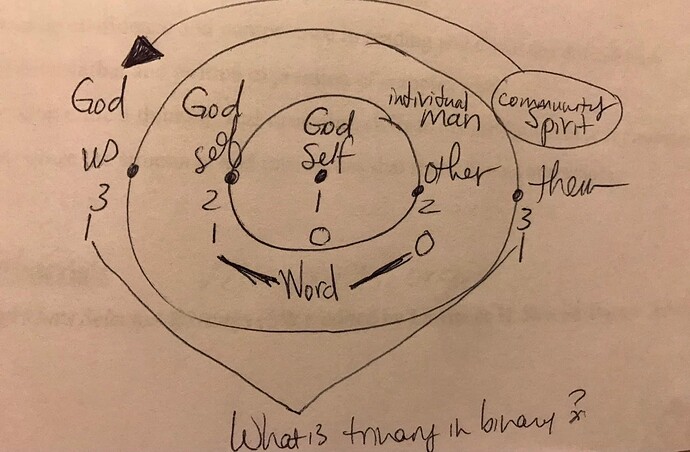 God
us
3
1
God
self
2
1
God
Self
1
0
individual
man
other
2
0
community
spirit
them
3
1
Word
What is trinary in binary?